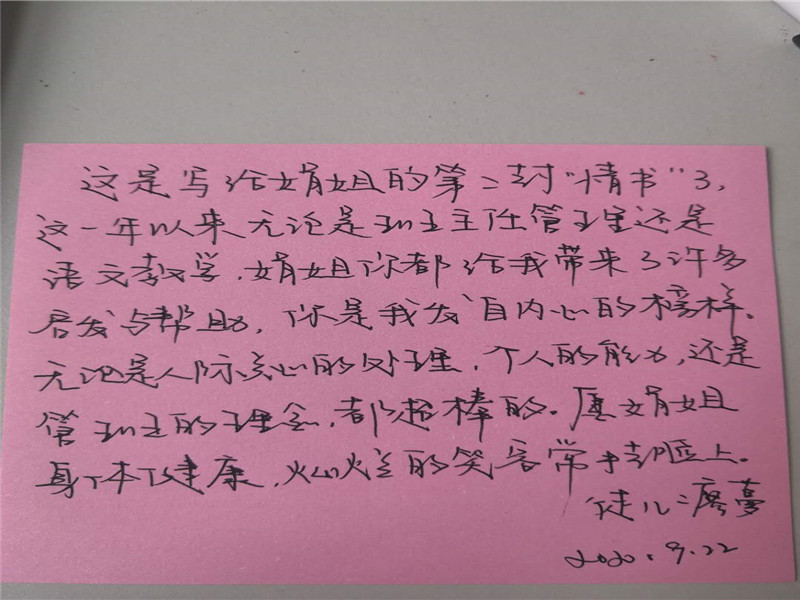 这是写给娟姐的第二封“情书”了,
这一年以来无论是班主任管理还是
语文教学,娟姐你都给我带来了许多
启发与帮助,你是我发自内心的榜样。
无论是人际关心的处理,个人的能力,还是
管班主的理念,都超棒的。愿娟姐
身体健康,灿烂的笑容常挂脸上。
徒儿:廖蔓
2020.9.22